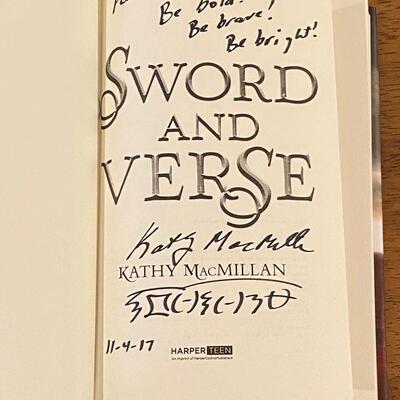 Be bold!
Be brave!
Be bright!
SWORD
AND
VERSE
Kathy MacMillan
KATHY MACMILLAN
11-4-17
HARPER TEEN
An Imprint of HarperCollinsPublishers